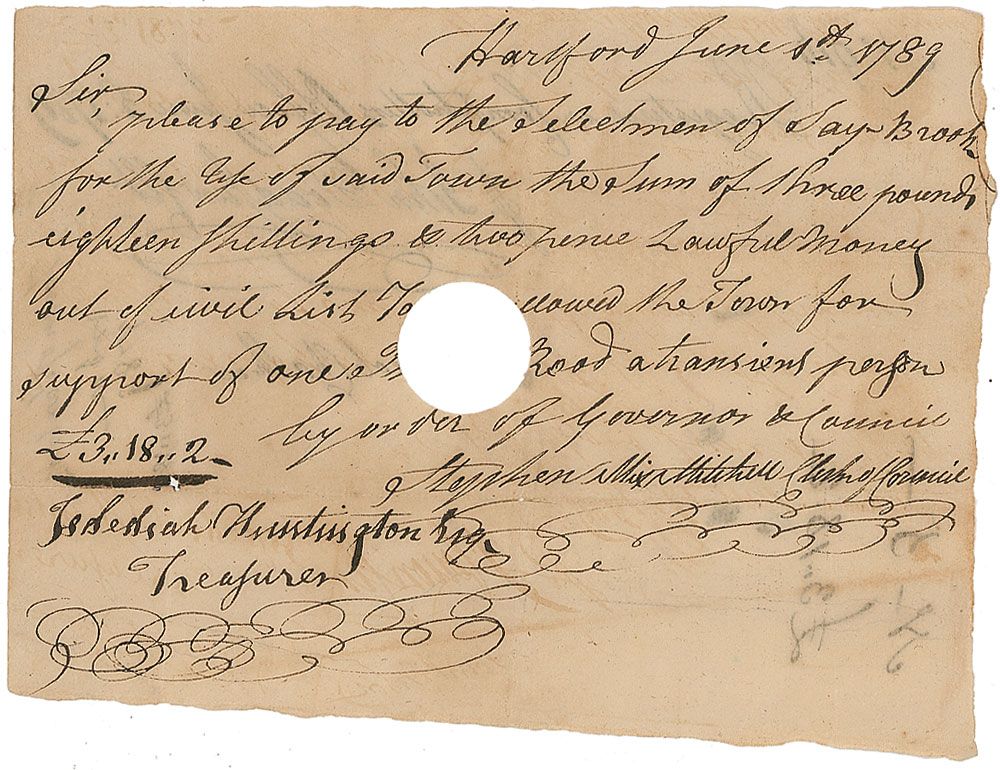 Hartford June 1st. 1789
Sir,
please to pay to the Selectmen of Say-Brook
for the Use of said Town the Sum of three pounds
eighteen Shillings & two pence Lawful Money
out of civil List llowed the Town for
support of one Rood a transient person
by order of Governor & Council
£3,,18,,2-
Stephen Mix Mitchell Clerk of Council
Jedediah Huntington Esq.
Treasurer